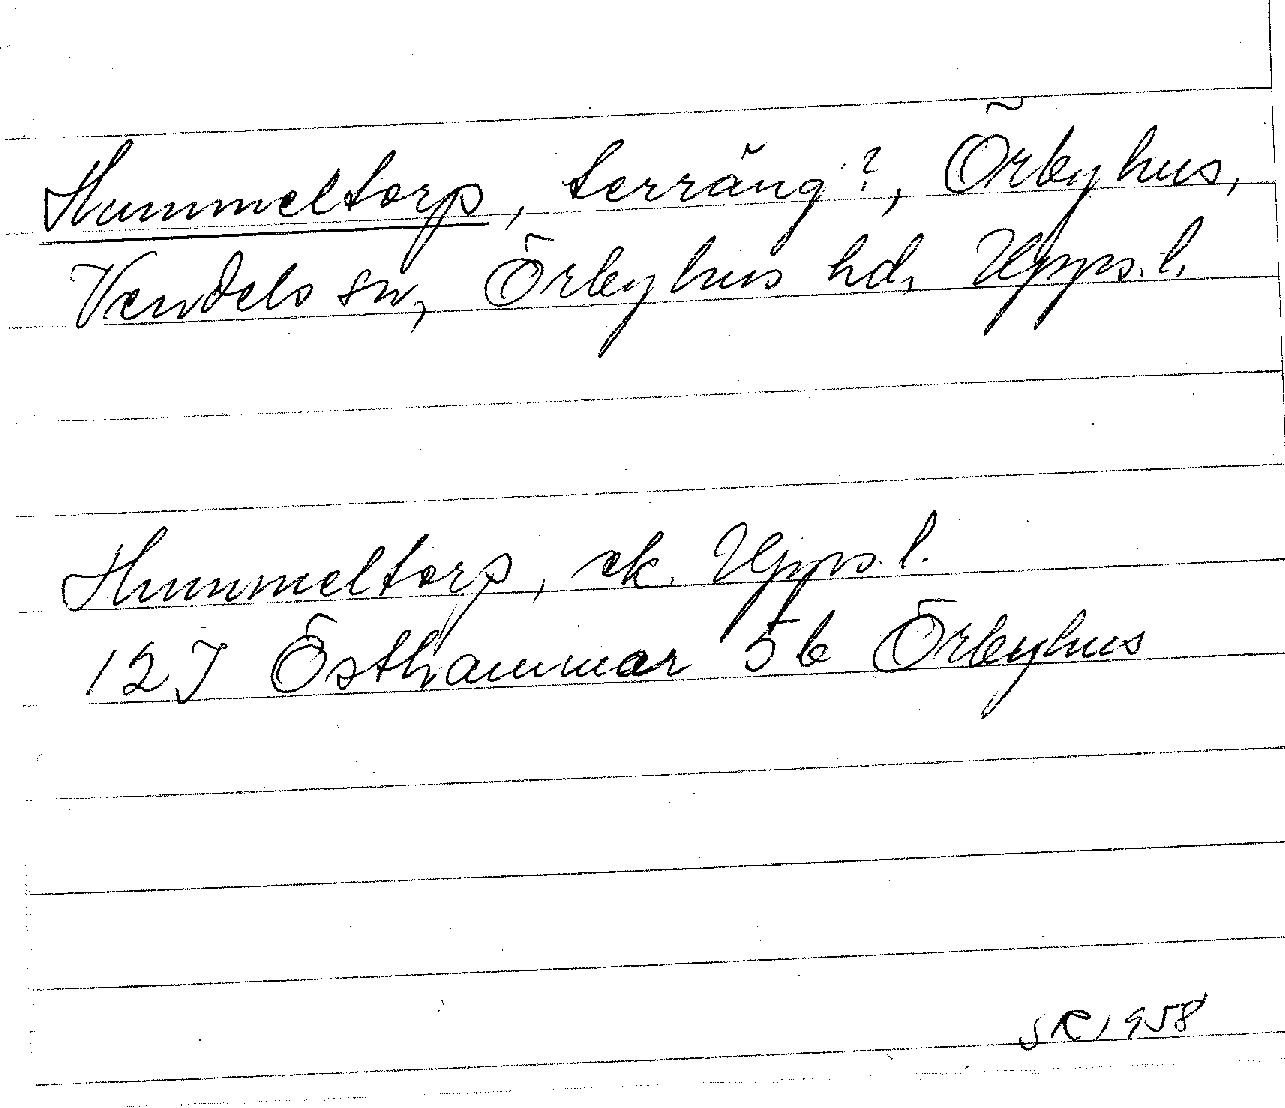 Hummeltorp, terräng?, Örbyhus,
Vendels sn, Örbyhus hd, Upps.l.
Hummeltorp, ek. Upps.l.
12I Östhammar 5b Örbyhus
SR 1958